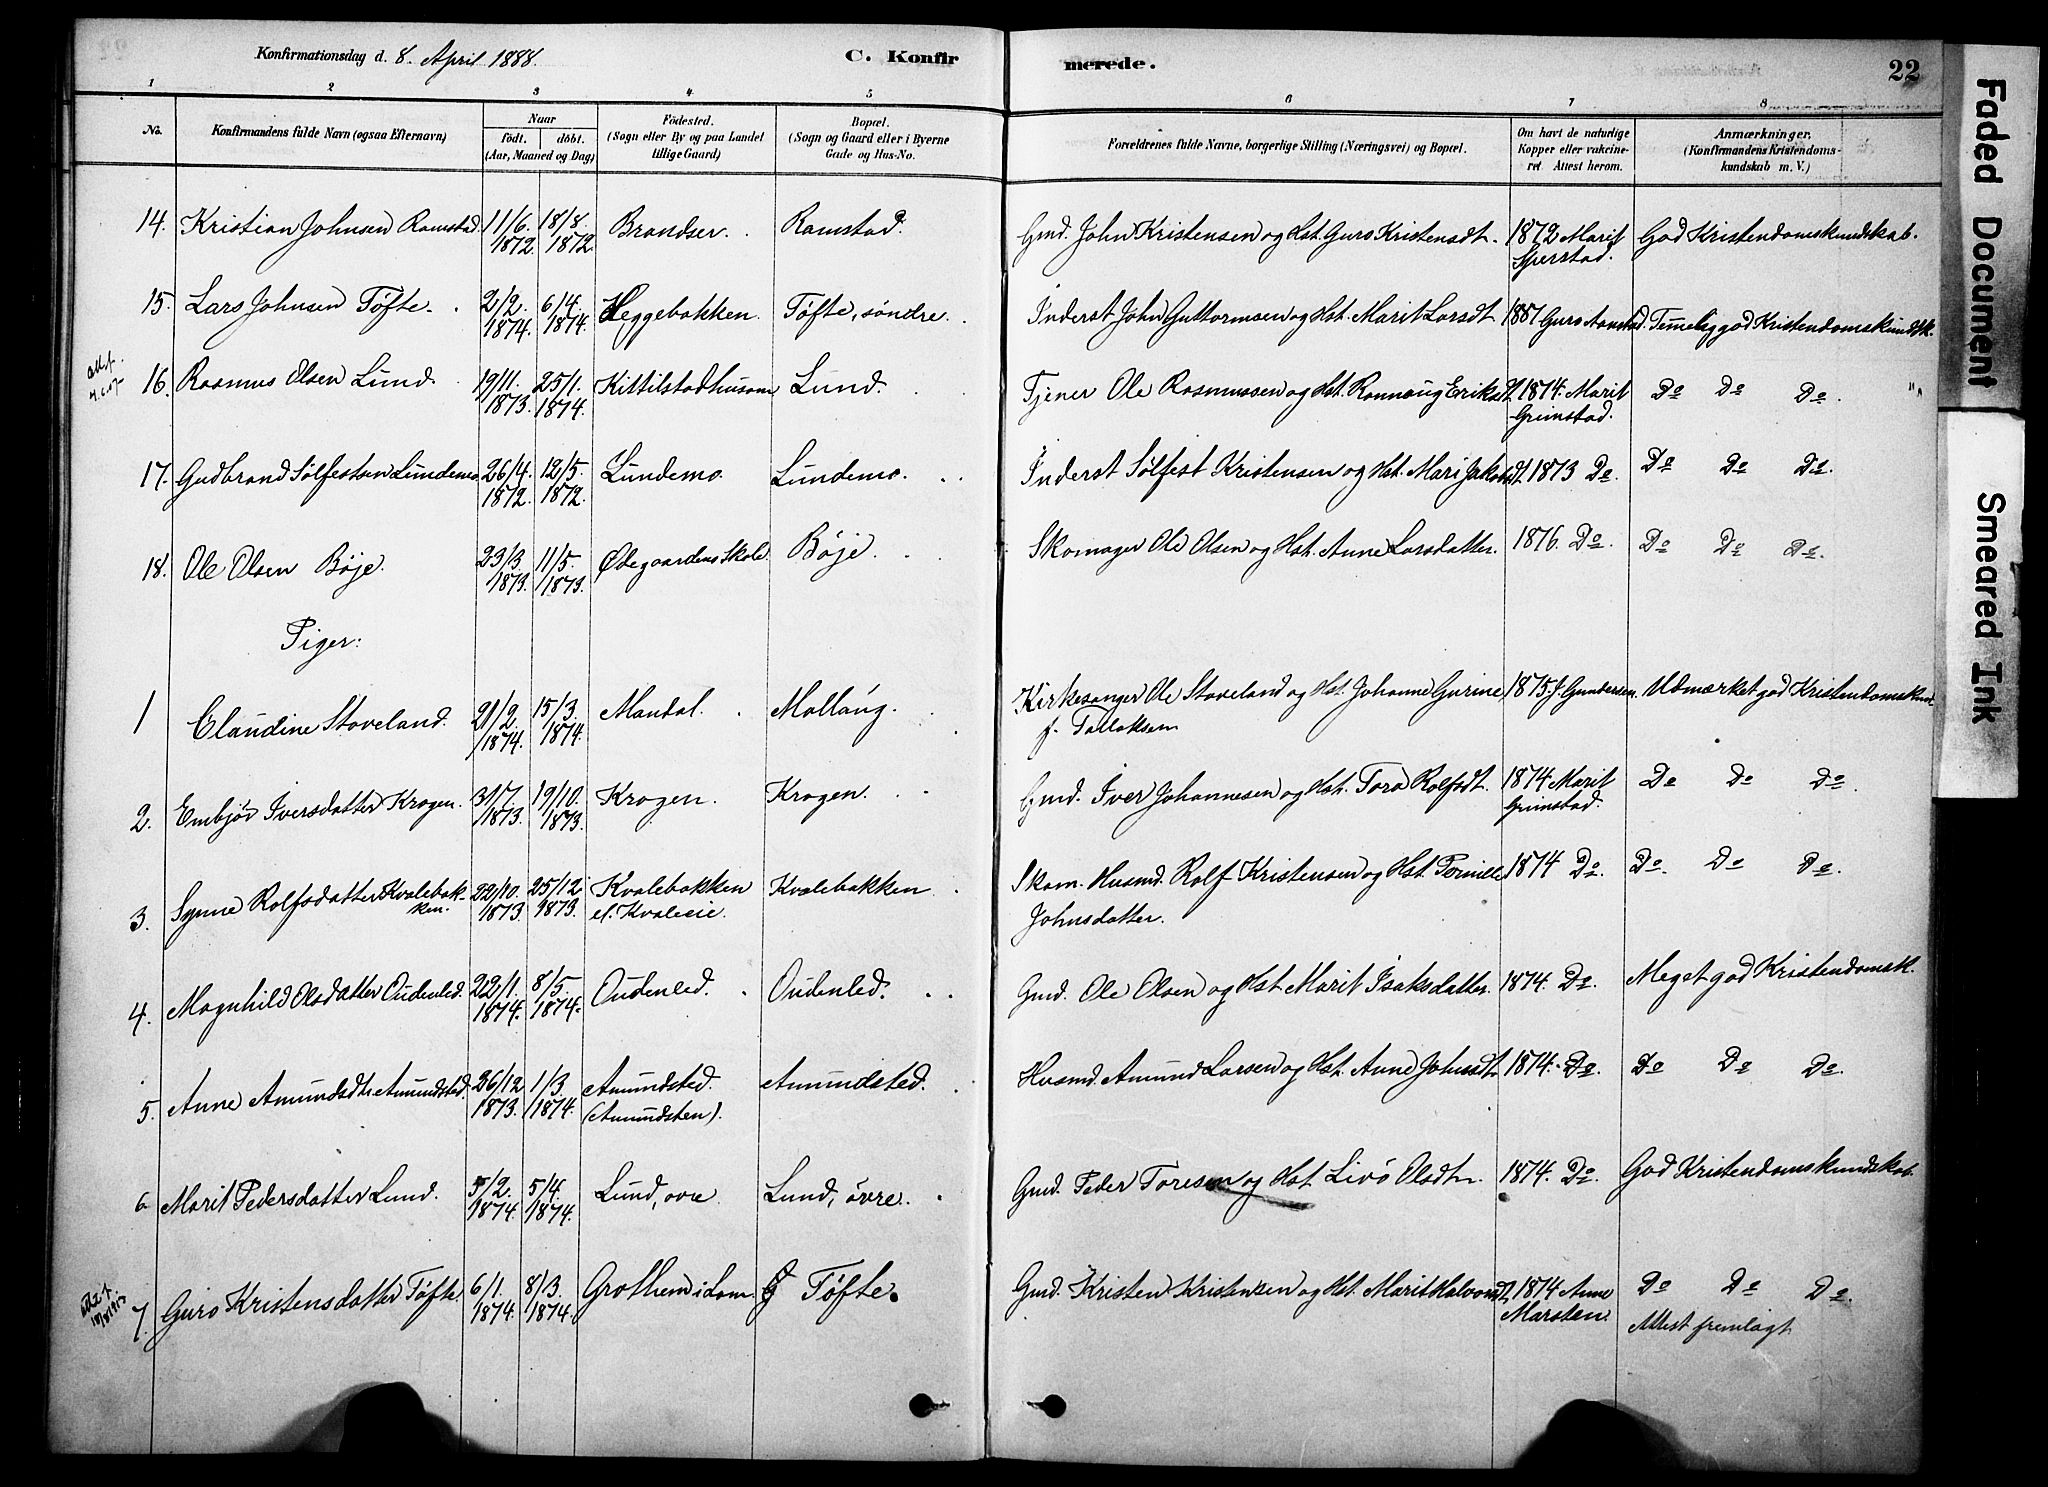 Konfirmationsdag d. 8. April 1888. C. Konfirmerede. 22
1 2 3 4 5 6 7 8
No. Konfirmandens fulde Navn (ogsaa Efternavn) Naar födt. döbt. (Aar, Maaned og Dag) Födested. (Sogn eller By og paa Landet tillige Gaard) Bopæl. (Sogn og Gaard eller i Byerne Gade og Hus-No. Forældrenes fulde Navne, borgerlige Stilling (Næringsvei) og Bopæl. Om havt de naturlige Kopper eller vakcineret Attest herom. Anmærkninger. (Konfirmandens Kristendomskundskab m. V.)
14. Kristian Johnsen Ramstad. 11/6. 1872. 18/8. 1872. Brandser. Ramstad. Gmd. John Kristensen og Hst. Guro Kristensdt. 1872 Marit Sperstad. God Kristendomskundskab.
15. Lars Johnsen Töfte. 2/2. 1874. 6/4. 1874. Heggebakken. Töfte, söndre. Inderst John Guttormsen og Hst. Marit Larsdt. 1887 Guro Aanstad. Temmelig god Kristendomskundsk.
16. Rasmus Olsen Lund. 19/11. 1873. 25/1. 1874. Kittilstadhusom Lund. Tjener Ole Rasmussen og Hst. Rønnaug Eriksdt. 1874. Marit Grimstad. Do Do Do.
17. Gudbrand Sölfestsen Lundemo 26/4. 1872. 12/5. 1872. Lundemo. Lundemo. Inderst Sölfest Kristensen og Hst. Mari Jakobsdt. 1873 Do. Do Do Do.
18. Ole Olsen Böje. 23/3. 1873. 11/5. 1873. Ödegaardens Skole. Böje. Skomager Ole Olsen og Hst. Anne Larsdatter. 1876. Do. Do Do Do.
Piger:
1 Claudine Staveland. 21/2. 1874. 15/3. 1874. Mandal. Mollaug. Kirkesanger Ole Staveland og Hst. Johanne Gurine f. Tallaksen 1875. J. Gundersen. Udmærket god Kristendomskund
2. Embjör Iversdatter Krogen. 31/7. 1873. 19/10. 1873. Krogen. Krogen. Gmd. Iver Johannesen og Hst. Tora Rolfsdt. 1874 Marit Grimstad. Do Do Do.
3. Synne Rolfsdatter Kvalebakken. 22/10. 1873 25/12. 1873. Kvalebakken el. Kvaleeie. Kvalebakken Skom. Husmd. Rolf Kristensen og Hst. Pernille Johnsdatter. 1874 Do. Do. Do Do.
4. Magnhild Olsdatter Oudenled. 22/1. 1874. 8/5. 1874. Oudenled. Oudenled. Gmd. Ole Olsen og Hst. Marit Isaksdatter. 1874. Do. Meget god Kristendomsk.
5. Anne Amundsdtr Amundsted. 26/12 1873. 1/3. 1874. Amundsted. (Amundsten). Amundsted. Husmd. Amund Larsen og Hst. Anne Johnsdt. 1874. Do. Do Do Do.
6 Marit Pedersdatter Lund. 5/2. 1874. 5/4. 1874. Lund, övre Lund, övre. Gmd. Peder Toresen og Hst. Livö Olsdtr. 1874. Do. God Kristendomskundskab.
7. Guro Kristensdatter Töfte. 6/1. 1874. 8/3. 1874. Grothem i Lom Töfte. Gmd. Kristen Kristensen og Hst. Marit Halvorsdt. 1874 Anne Marsten. Do Do Do. Attest fremlagt
Faded Document
Smeared Ink